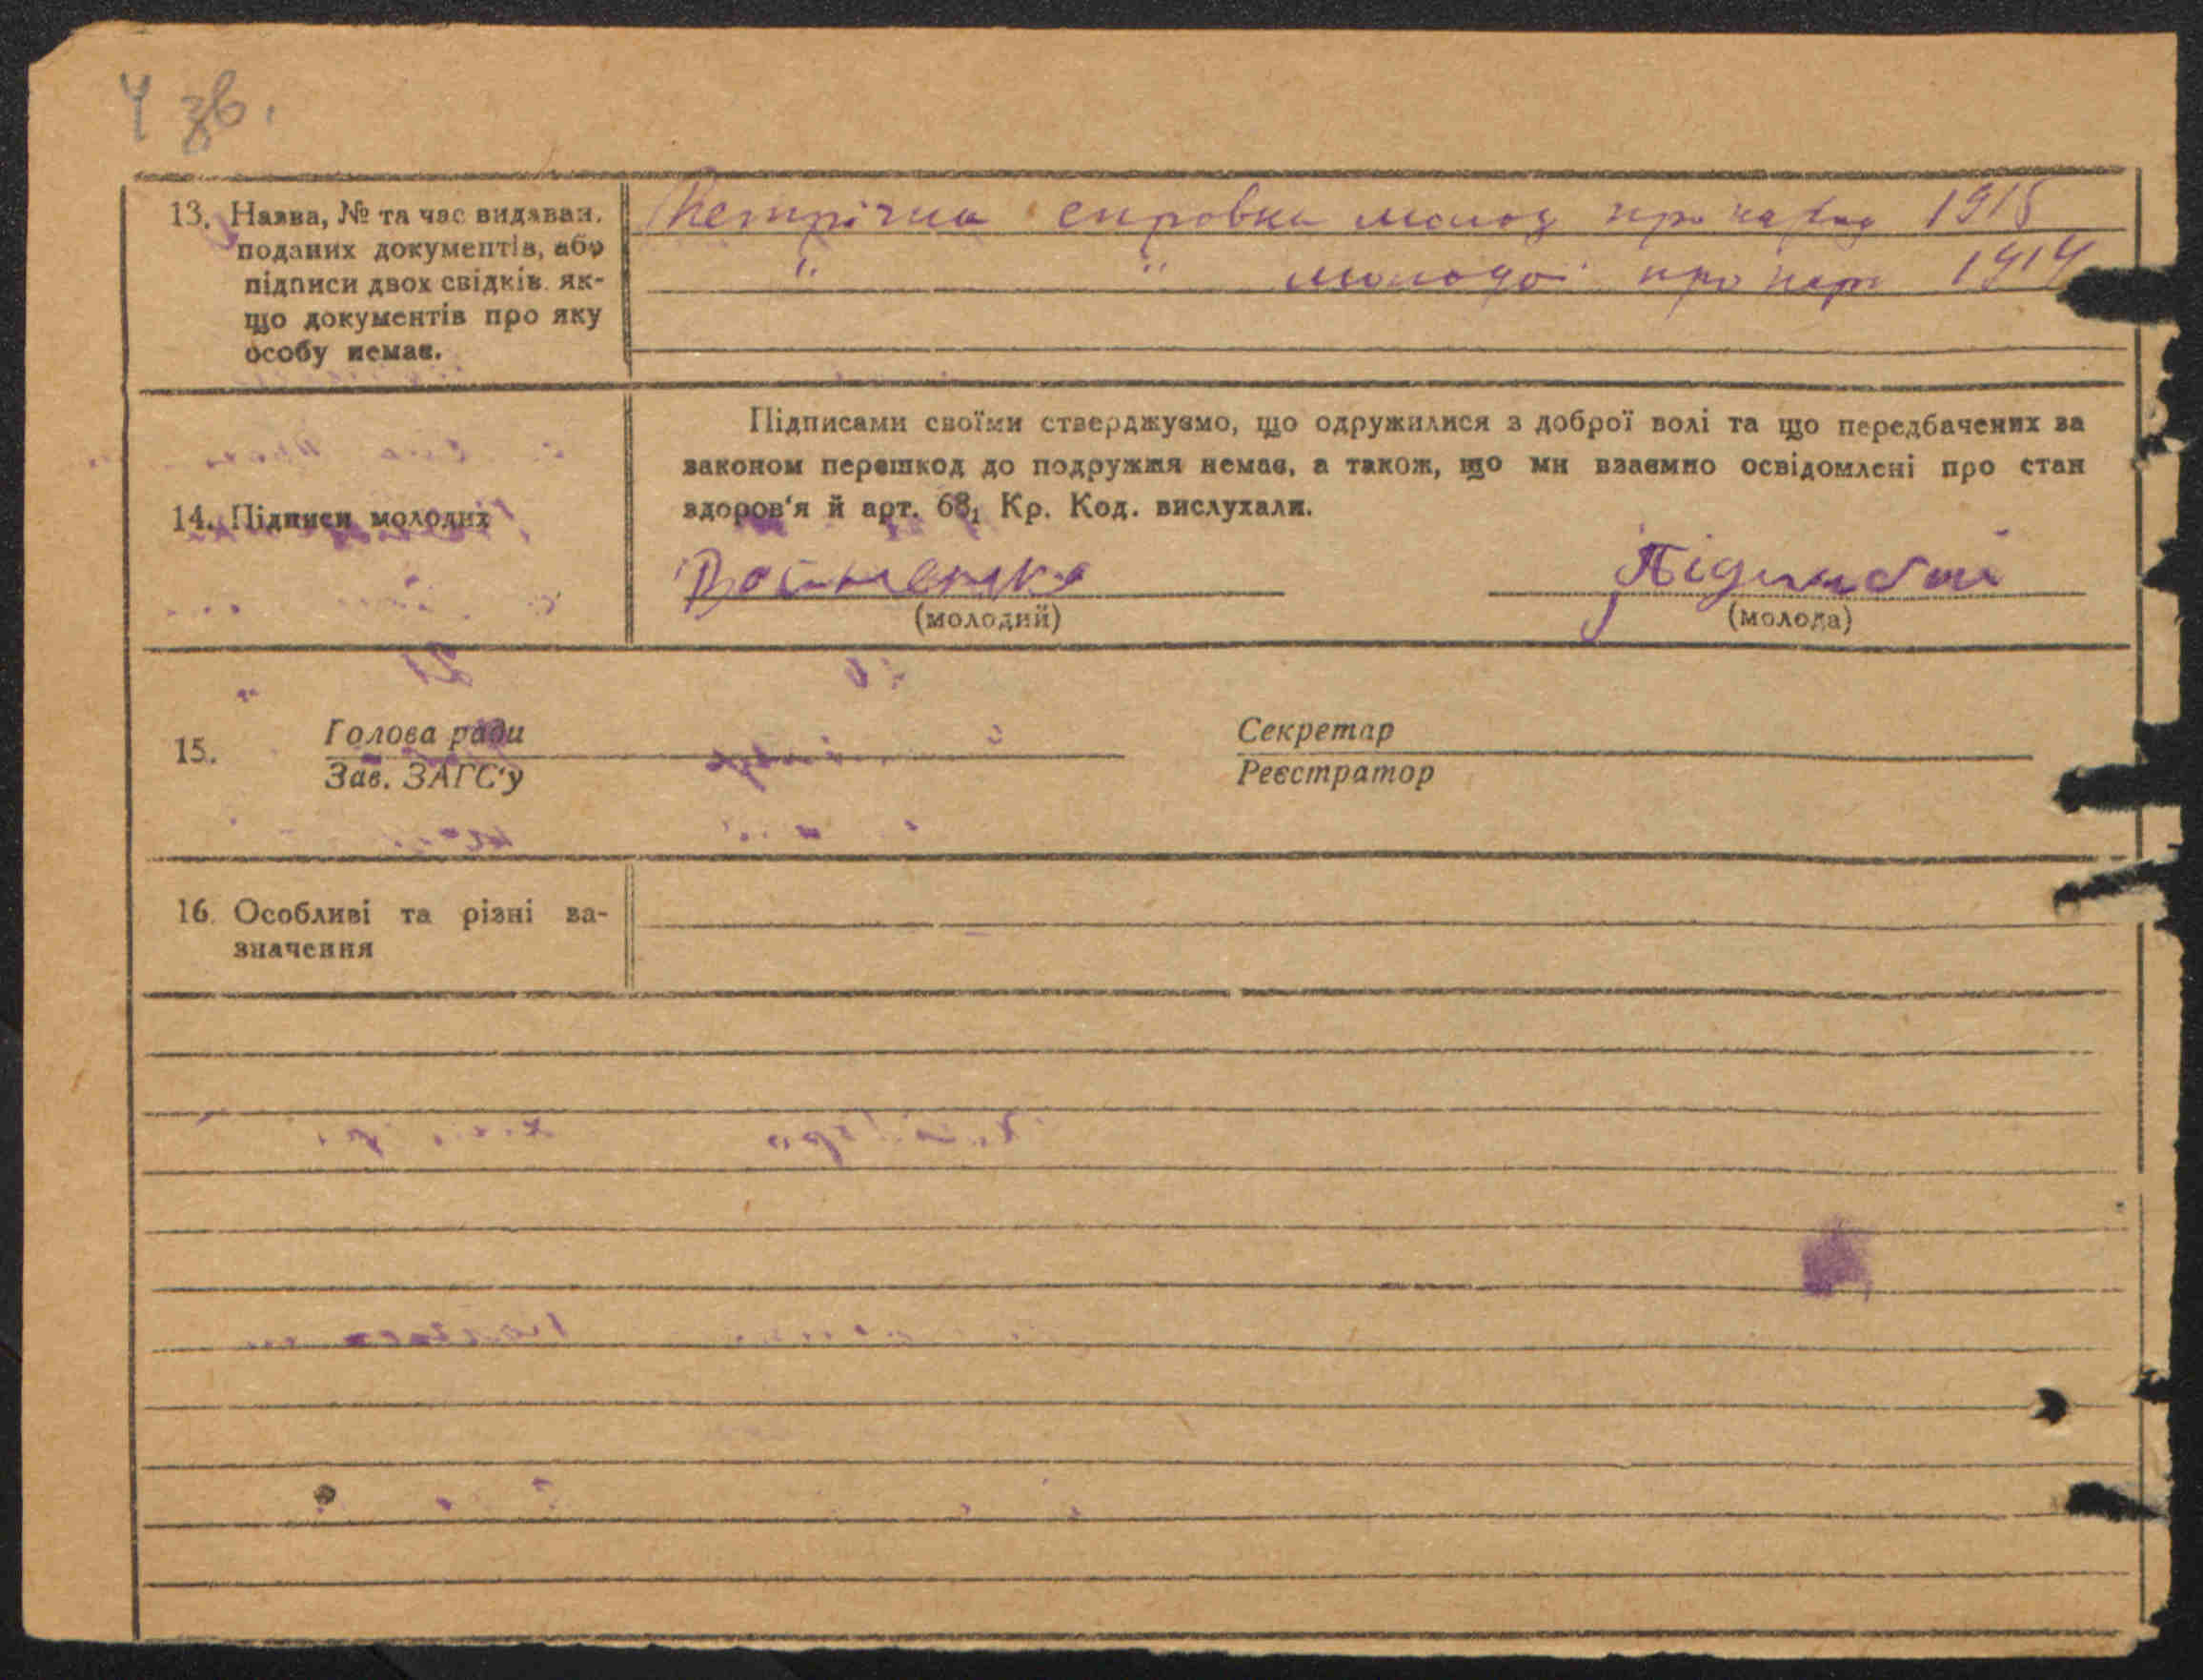 4 зв.
13. Назва, № та час видаван. поданих документів, або підписи двох свідків, як-що документів про яку особу немає.
Метрічна справка молод про народ 1915
" " молодої про нар 1914
Підписами своїми стверджуємо, що одружилися з доброї волі та що передбачених за
законом перешкод до подружжя немає, а також, що ми взаємно освідомлені про стан
здоров'я й арт. 68₁ Кр. Код. вислухали.
14. Підписи молодих
(молодий)
(молода)
15. Голова ради
Зав. ЗАГС'у
Секретар
Реєстратор
16. Особливі та різні за-
значення